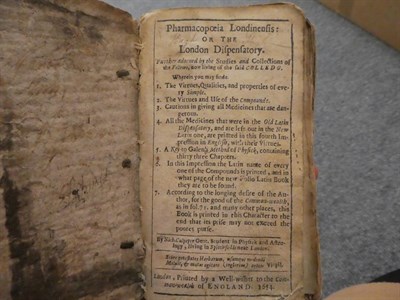 Pharmacopœia Londinensis:
OR THE
London Dispensatory.
Further adorned by the Studies and Collections of
the Fellows, now living of the said COLLEDG.
Wherein you may finde
1. The Virtues, Qualities, and properties of eve-
ry Simple.
2. The Virtues and Use of the Compounds.
3. Cautions in giving all Medicines that are dan-
gerous.
4. All the Medicines that were in the Old Latin
Dispensatory, and are left out in the New
Latin one, are printed in this fourth Im-
pression in English, with their Virtues.
5. A Key to Galen's Method of Physick, containing
thirty three Chapters.
6. In this Impression the Latin name of every
one of the Compounds is printed, and in
what page of the new Folio Latin Book
they are to be found.
7. According to the longing desire of the Au-
thor, for the good of the Common-wealth,
as in fol. 71. and many other places, this
Book is printed in this Character to the
end that its price may not exceed the
poorer purse.
By Nich. Culpeper Gent. Student in Physick and Astro-
logy, living in Spittle-fields neer London.
London, Printed by a Well-wisher to the Com-
mon-wealth of ENGLAND.